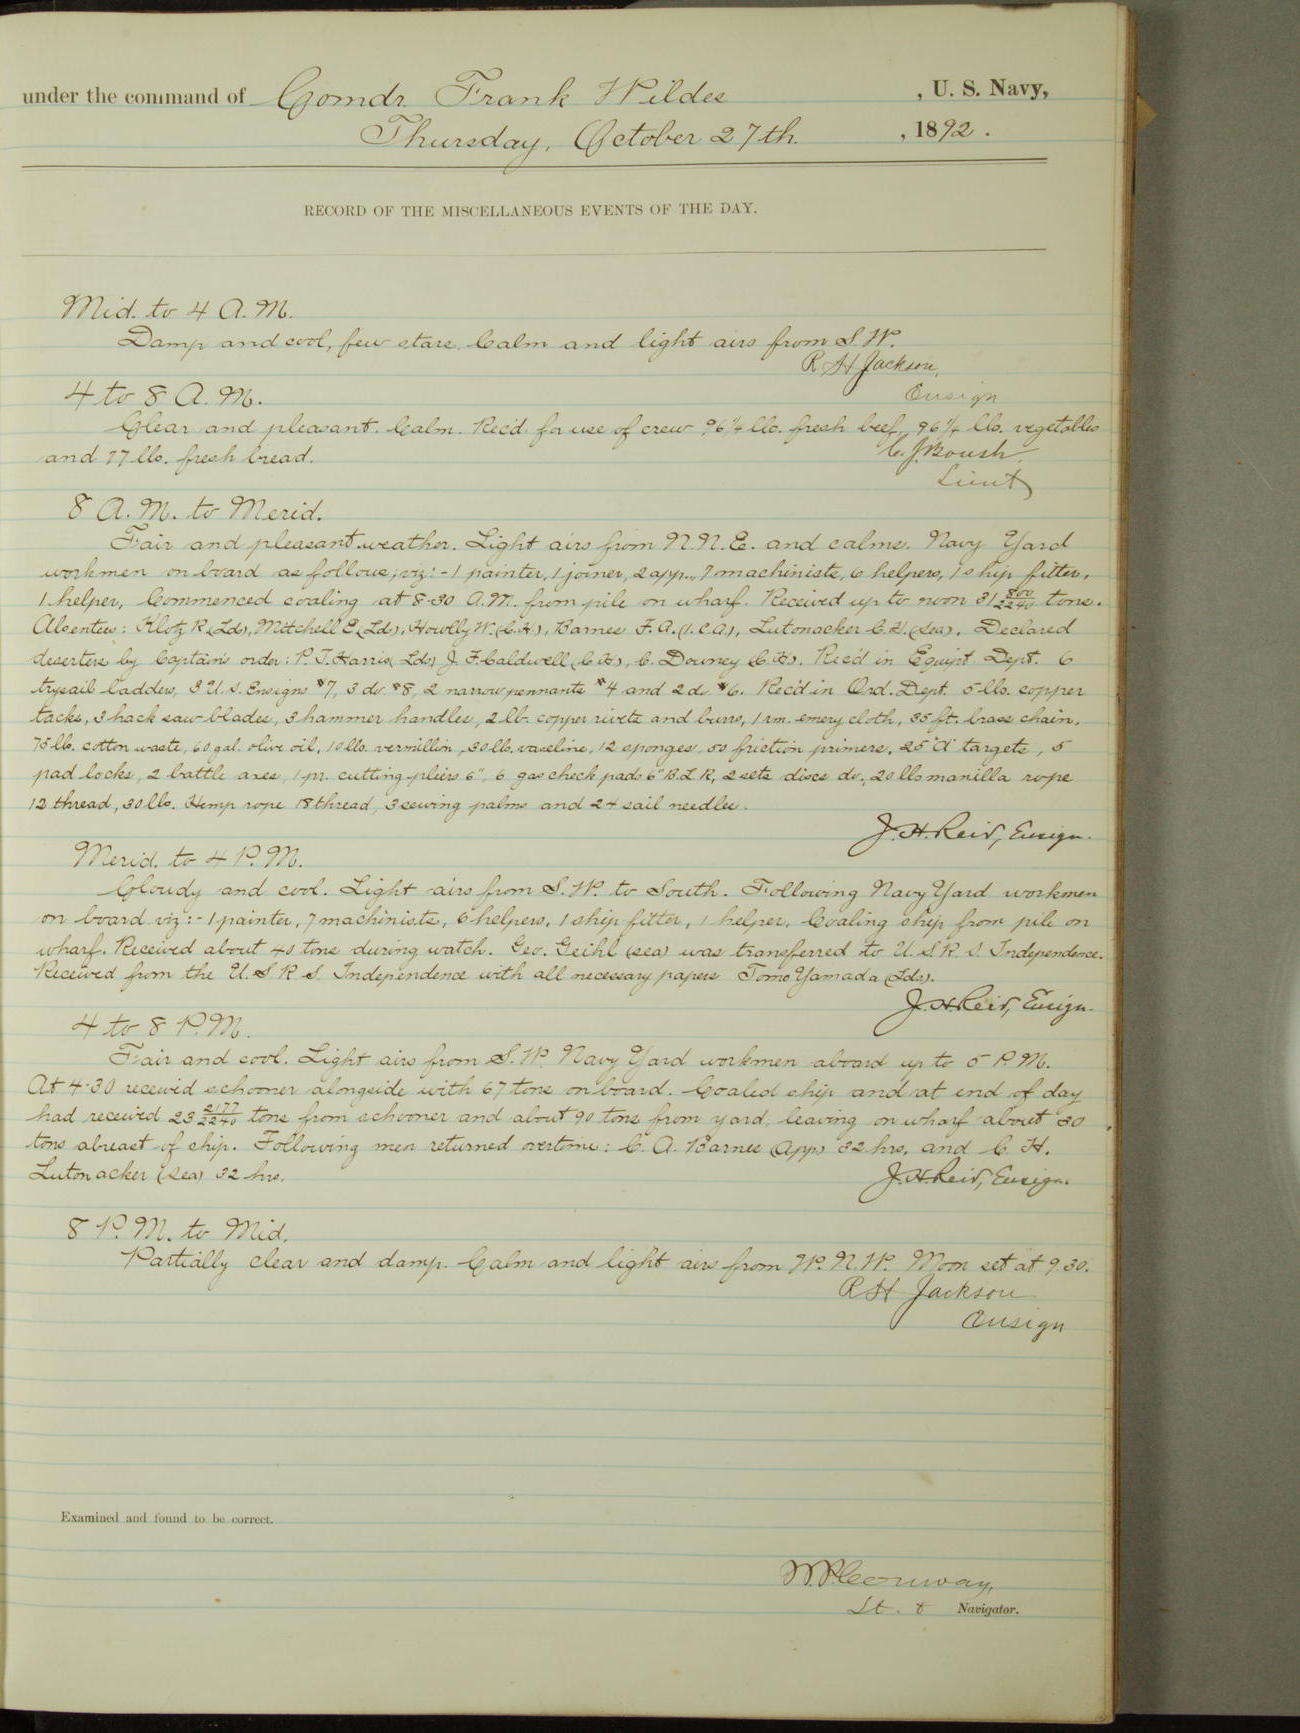 under the command of Comdr. Frank Wildes , U. S. Navy,
Thursday, October 27th. , 1892.
RECORD OF THE MISCELLANEOUS EVENTS OF THE DAY.
Mid. to 4 A.M.
Damp and cool, few stars. Calm and light airs from S.W.
R H Jackson,
Ensign
4 to 8 A.M.
Clear and pleasant. Calm. Rec'd. for use of crew 96 1/4 lbs. fresh beef, 96 1/4 lbs. vegetables
and 77 lbs. fresh bread.
C. J. Boush
Lieut
8 A.M. to Merid.
Fair and pleasant weather. Light airs from N.N.E. and calms. Navy Yard
workmen on board as follows; viz:- 1 painter, 1 joiner, 2 app., 7 machinists, 6 helpers, 1 ship fitter,
1 helper, Commenced coaling at 8-30 A.M. from pile on wharf. Received up to noon 31 800/2240 tons.
Absentees: Klotz R. (Lds), Mitchell E. (Lds), W. (C.H.), Barnes F. A. (1.C.A), Lutonacker C. H. (Sea). Declared
deserters by Captain's order: P. T. Harris (Lds) J. F. Caldwell (C H), C. Downey (C. H). Rec'd in Equip't Dept. 6
trysail ladders, 3 U.S. Ensigns #7, 3 do. #8, 2 narrow pennants #4 and 2 do. #6. Rec'd in Ord. Dept. 5 lbs. copper
tacks, 3 hack saw blades, 3 hammer handles, 2 lb. copper rivets and burrs, 1 rm. emery cloth, 35 ft. brass chain,
75 lb. cotton waste, 60 gal. olive oil, 10 lbs. vermillion, 30 lb. vaseline, 12 sponges, 50 friction primers, 25 "A" targets, 5
pad locks, 2 battle axes, 1 pr. cutting pliers 6", 6 gas check pads 6" B.L.R, 2 sets discs do., 20 lbs manilla rope
12 thread, 30 lbs. Hemp rope 18 thread, 3 sewing palms and 24 sail needles.
J. H. Reid, Ensign.
Merid. to 4 P.M.
Cloudy and cool. Light airs from S.W. to South. Following Navy Yard workmen
on board viz:- 1 painter, 7 machinists, 6 helpers, 1 ship fitter, 1 helper. Coaling ship from pile on
wharf. Received about 40 tons during watch. Geo. Geihl (sea) was transferred to U.S.R.S. Independence.
Received from the U.S.R.S. Independence with all necessary papers Tomo Yamada (Lds).
J. H. Reid, Ensign.
4 to 8 P.M.
Fair and cool. Light airs from S.W. Navy Yard workmen aboard up to 5 P.M.
At 4-30 received schooner alongside with 67 tons on board. Coaled ship and at end of day
had received 23 2177/2240 tons from schooner and about 90 tons from yard, leaving on wharf about 30
tons abreast of ship. Following men returned overtime: C. A. Barnes (App) 32 hrs. and C. H.
Lutonacker (Sea) 32 hrs.
J. H. Reid, Ensign.
8 P.M. to Mid.
Partially clear and damp. Calm and light airs from W.N.W. Moon set at 9.30.
R H Jackson
Ensign
Examined and found to be correct.
W. P. Conway,
Lt. & Navigator.